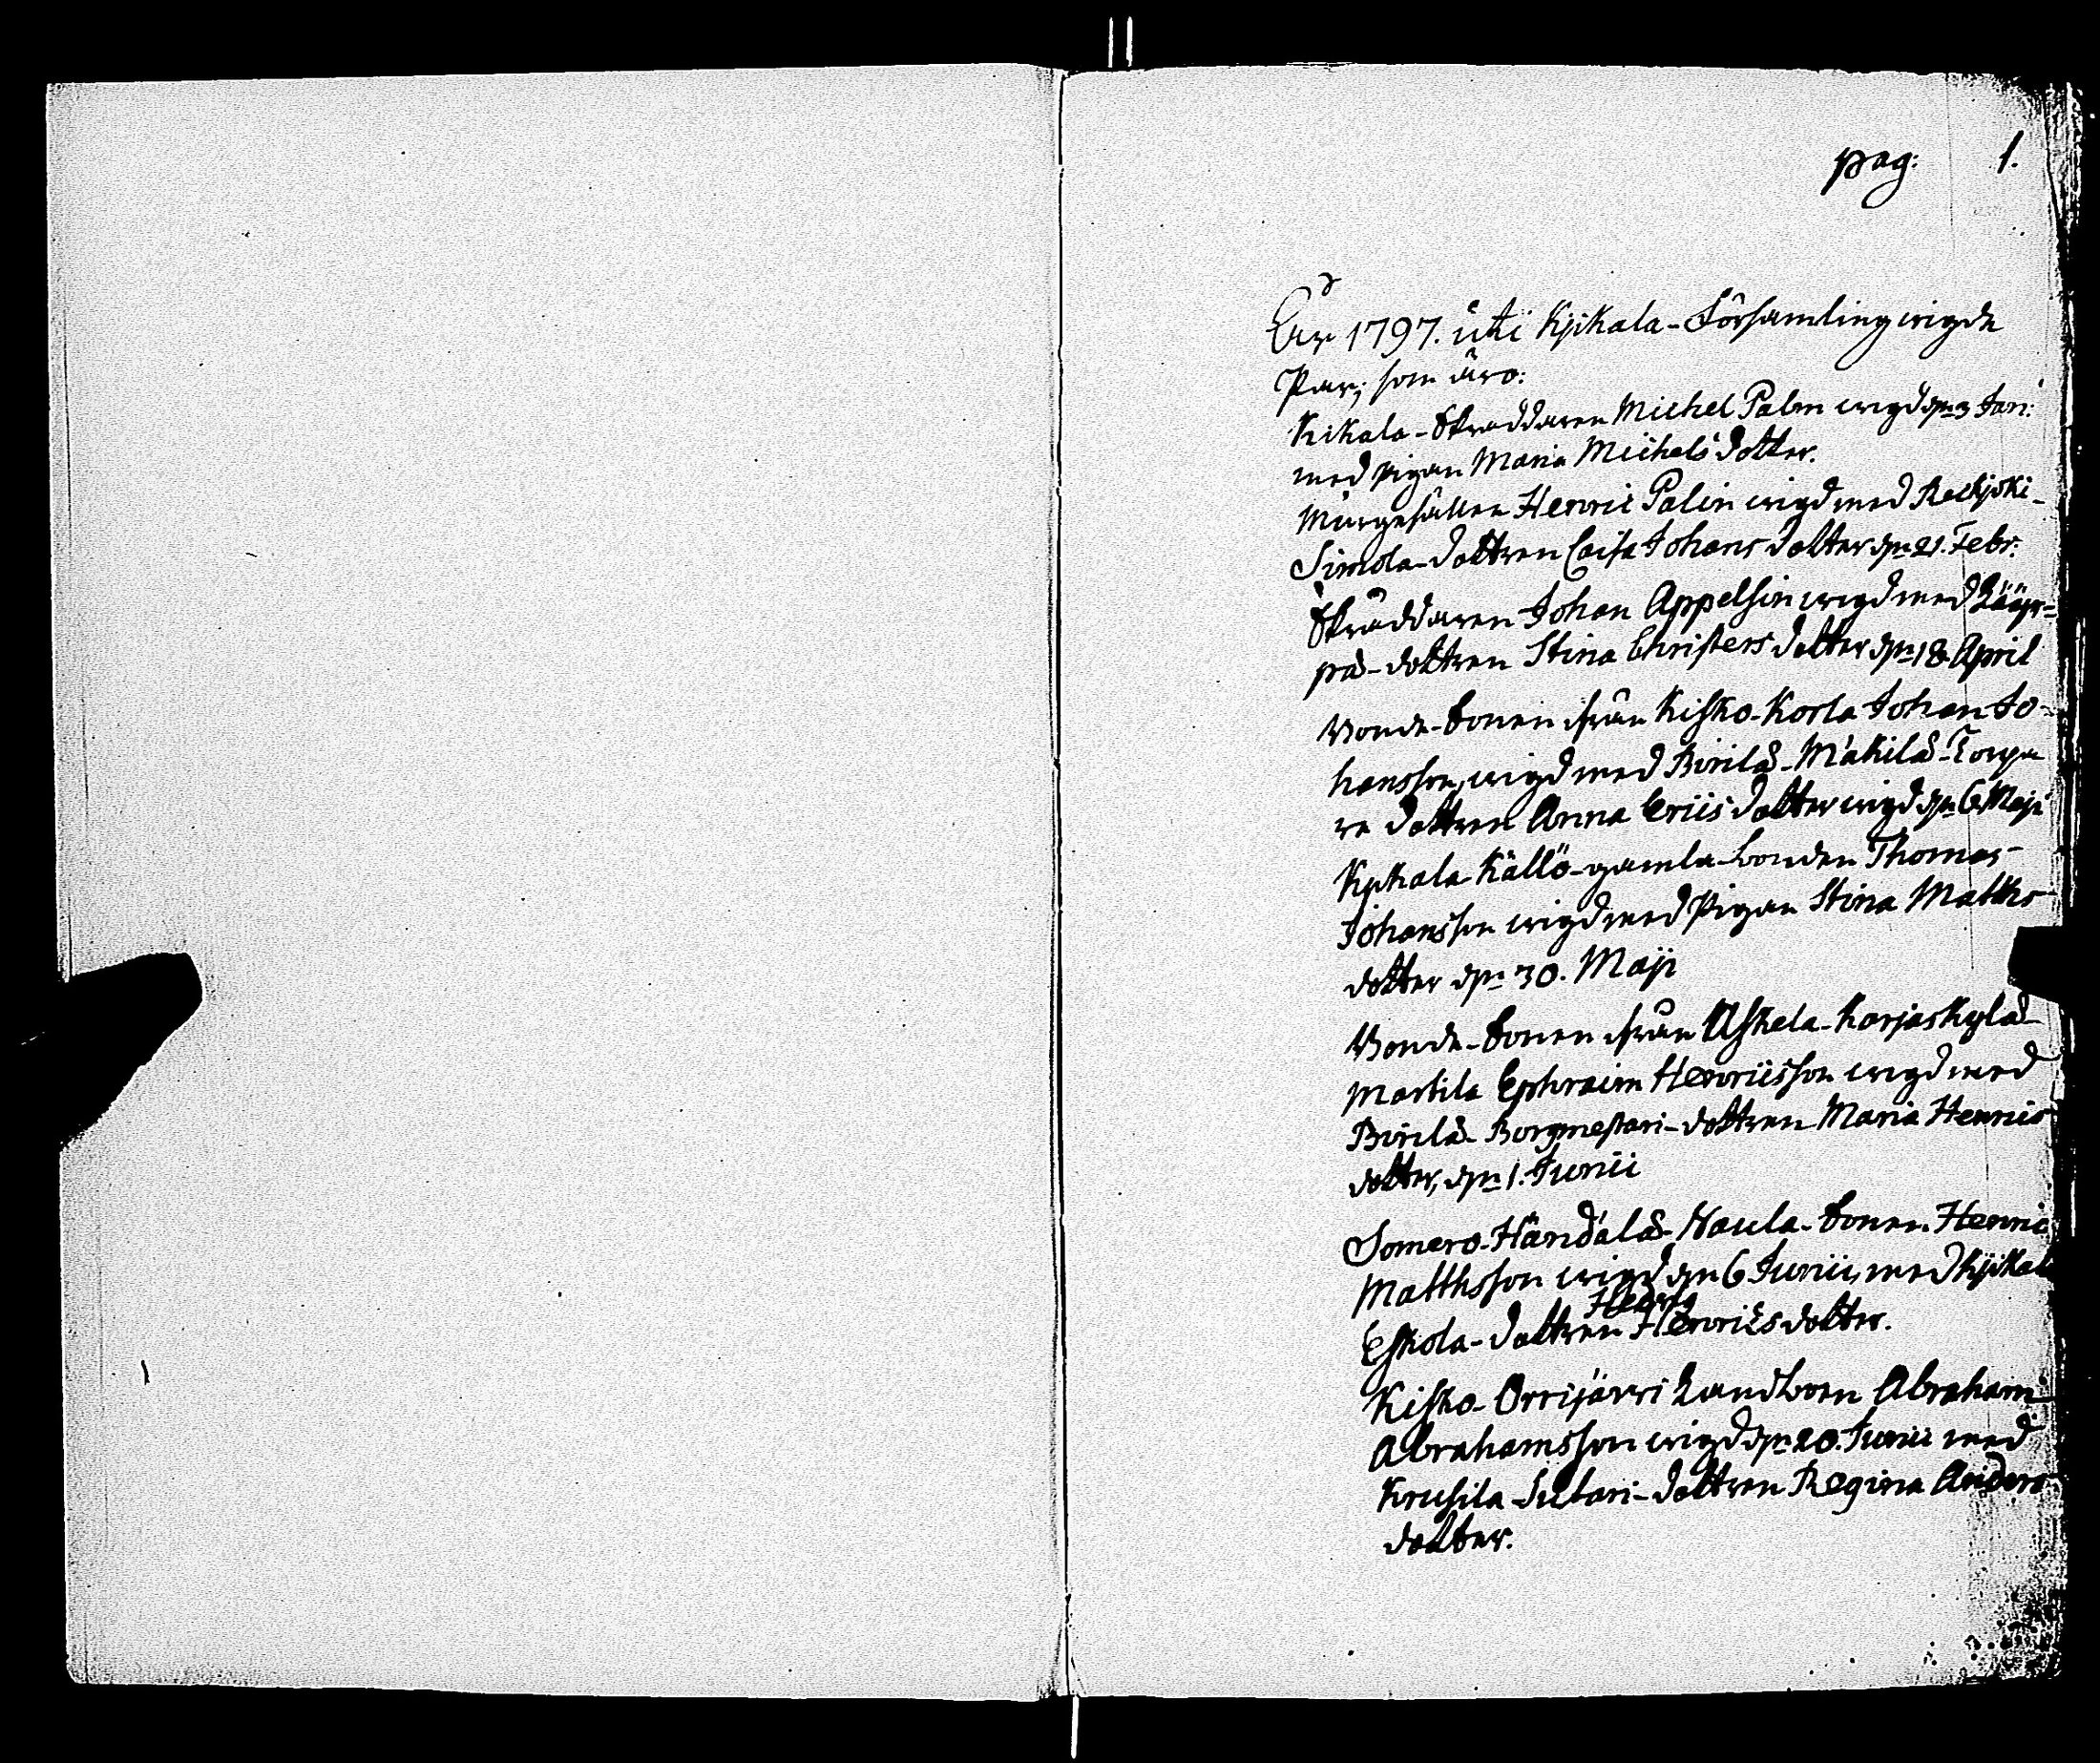 pag: 1.
År 1797. uti Kijkala-Församling wigde
Par; som äro:
Kikala-Skraddaren Michel Palm wigd dn 3 Jan:
med Pigan Maria Michels dotter.
Murgesällen Henric Palin wigd med Reckjoki-
Simola-dottren Caisa Johans dotter dn 21. Febr:
Skräddaren Johan Appelsin wigd med
på-dottren Stina Christers dotter dn 18 April
Bonde-Sonen ifrån Kisko-Korla Johan Jo-
hansson, wigd med Pirilä-Mäkilä-Torpa
re dottren Anna Erics dotter wigd dn 6 Maji
Kijkala Källö-gamla-bonden Thomas
Johansson wigd med Pigan Stina Matths
dotter dn 30. Maji
Bonde-Sonen ifrån Uskela-Karjaskylä-
Martila Ephraim Henricsson wigd med
Pirilä-Borgmestari-dottren Maria Henrics
dotter, dn 1. Junii
Somero-Händälä-Naula-Sonen Henric
Matthsson wigd dn 6 Junii, med Kijkala
Eskola-dottren Hedvig Henrics dotter.
Kisko-Orrijärvi Landboen Abraham
Abrahamsson wigd dn 20. Junii med
Krusila-Sutari-dottren Regina Anders
dotter.